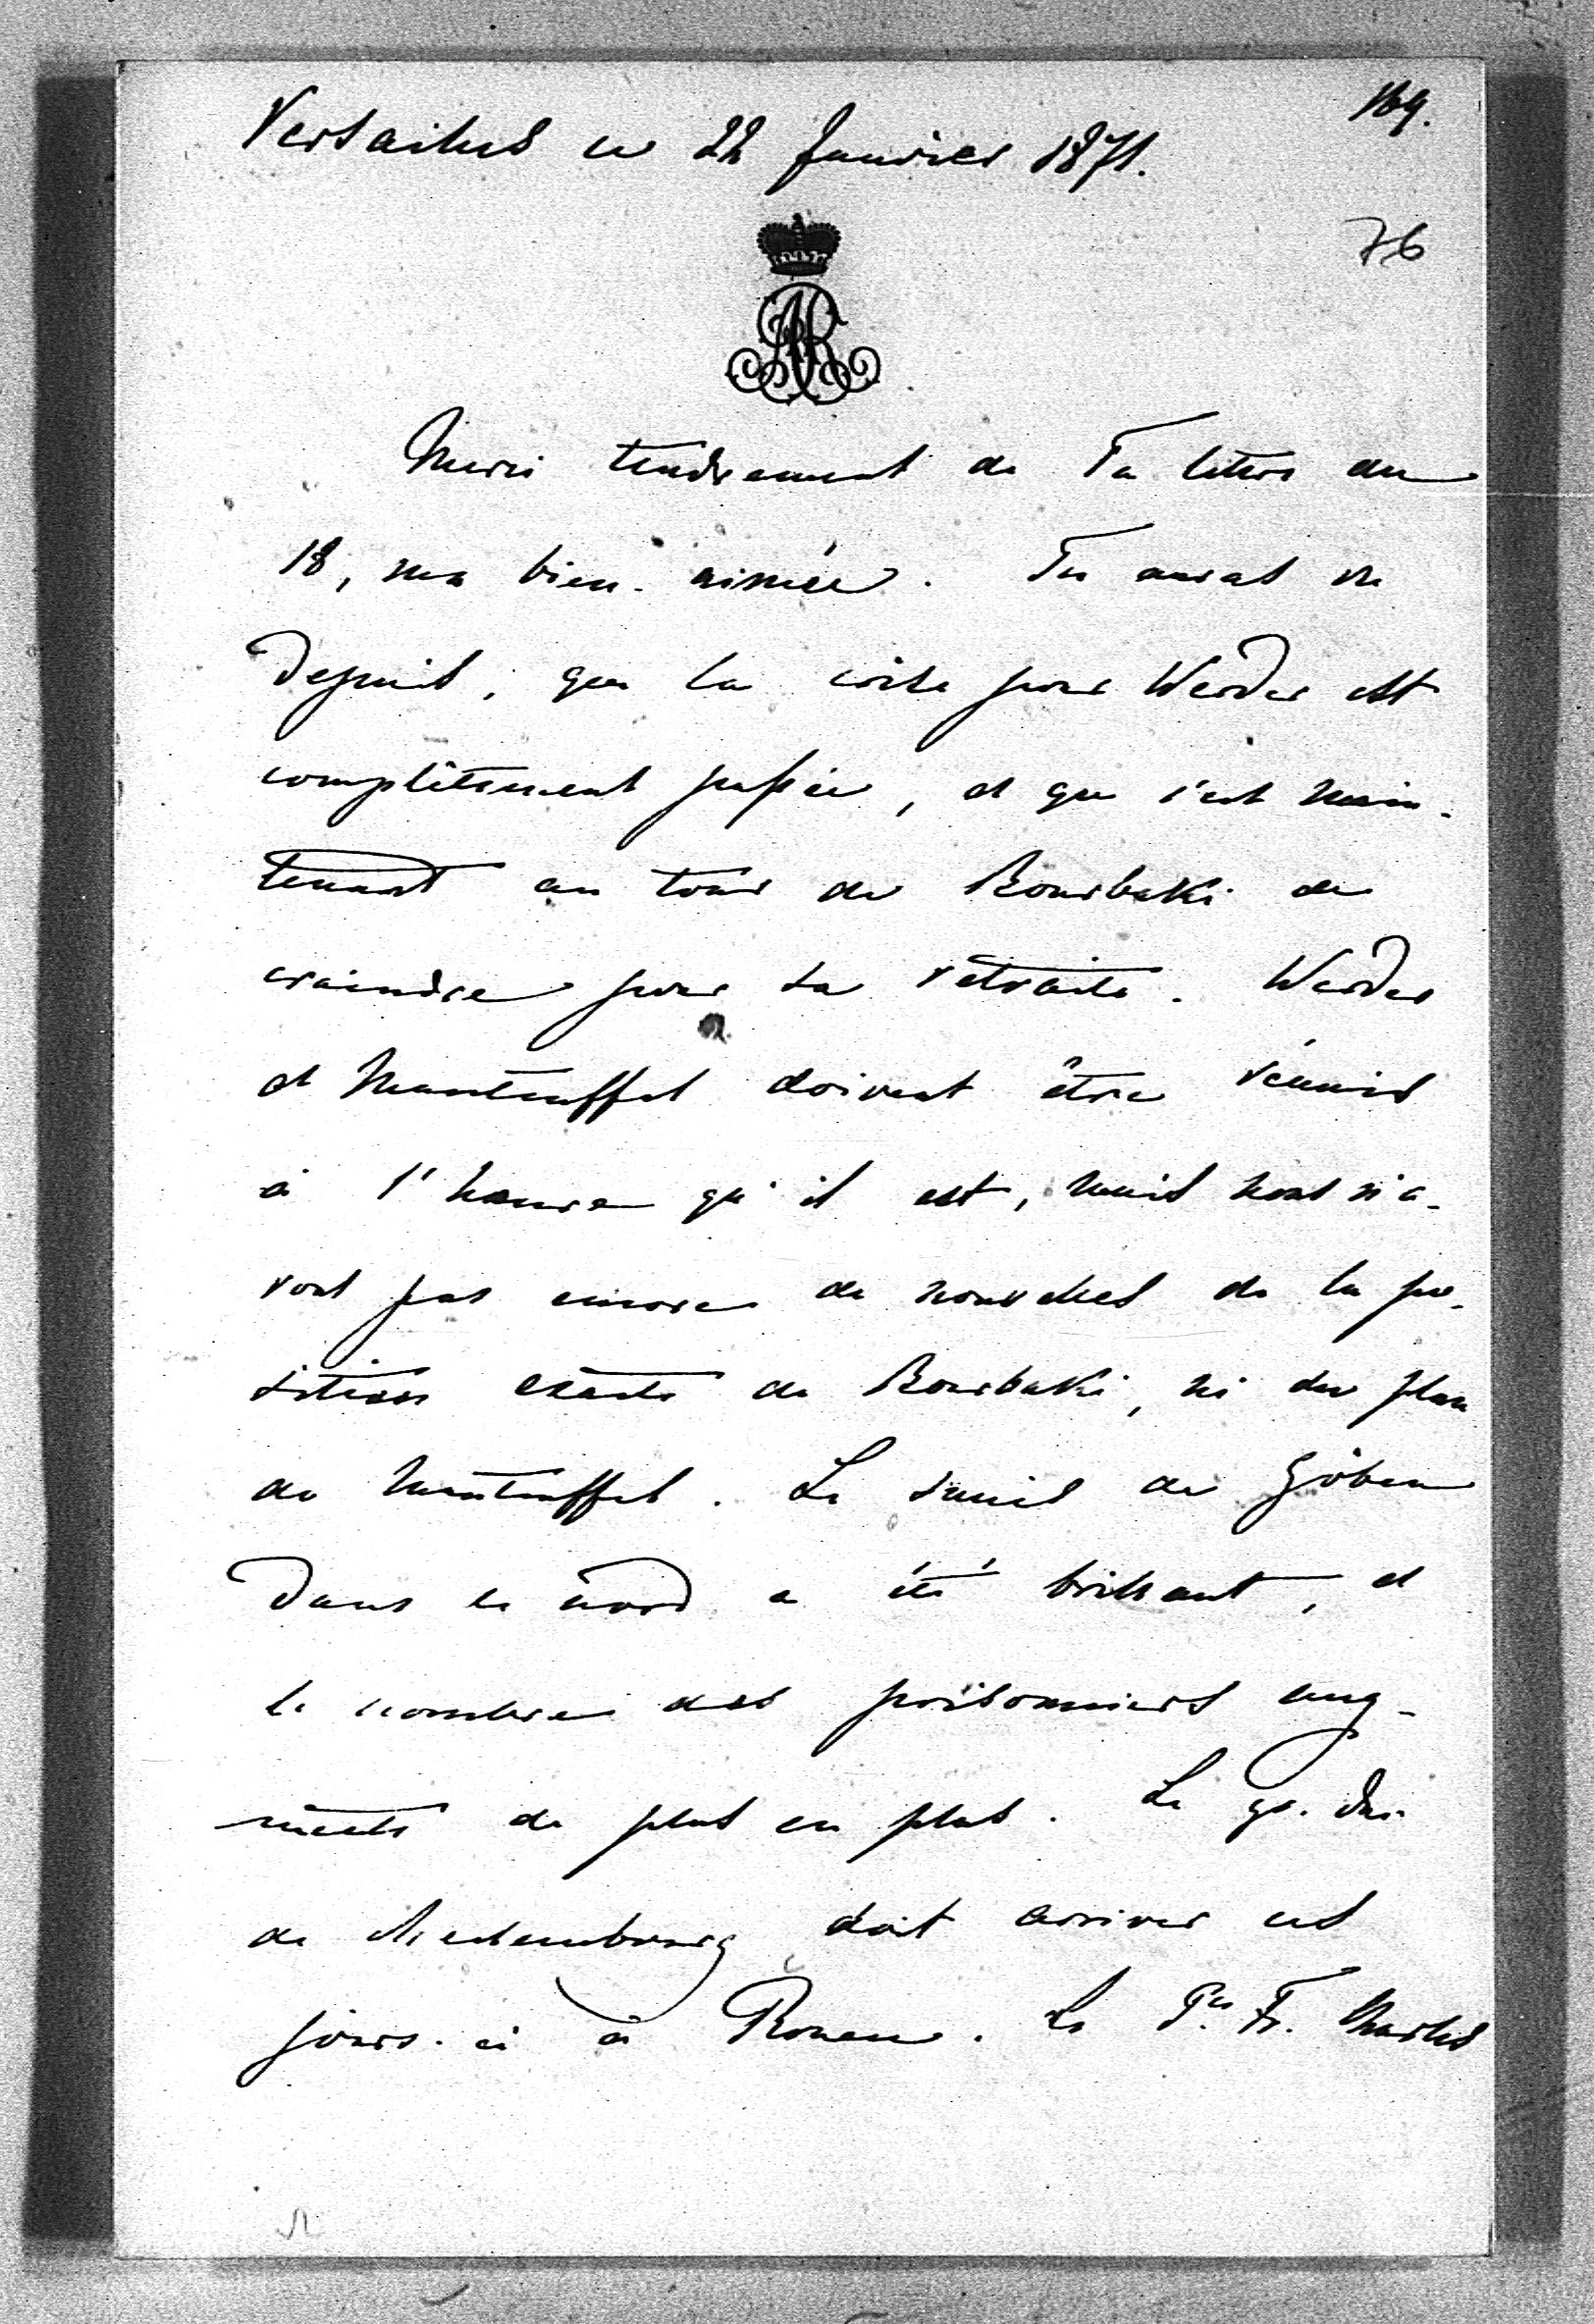 169.
Versailles ce 22 Janvier 1871.
76
Merci tendrement de Ta lettre du
18, ma bien-aimée. Tu auras vu
depuis, que la crise pour Werder est
complètement passée, et que c'est main-
tenant au tour de Bourbaki de
craindre pour sa retraite. Werder
et Manteuffel doivent être réunis
à l'heure qu'il est, mais nous n'a-
vons pas encore de nouvelles de la po-
sition exacte de Bourbaki, ni du plan
de Manteuffel. Le succès de Göben
dans le nord a été brillant, et
le nombre des prisonniers aug-
mente de plus en plus. Le gr. duc
de Mecklembourg doit arriver ces
jours-ci à Rouen. Le Pce Fr. Charles